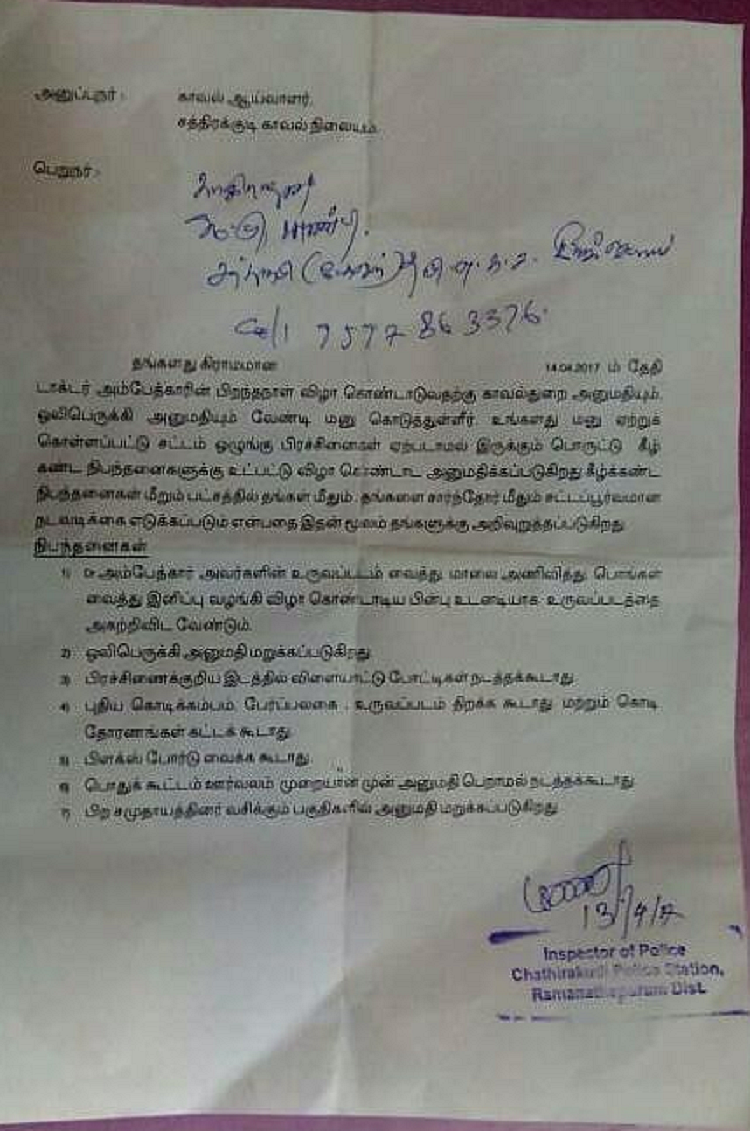 அனுப்புநர் :- காவல் ஆய்வாளர்,
சத்திரக்குடி காவல் நிலையம்.
பெறுநர் :-
பாண்டி.
Cell 7577863376.
தங்களது கிராமமான 14.04.2017 ம் தேதி
டாக்டர் அம்பேத்காரின் பிறந்தநாள் விழா கொண்டாடுவதற்கு காவல்துறை அனுமதியும்,
ஒலிபெருக்கி அனுமதியும் வேண்டி மனு கொடுத்துள்ளீர். உங்களது மனு ஏற்றுக்
கொள்ளப்பட்டு சட்டம் ஒழுங்கு பிரச்சினைகள் ஏற்படாமல் இருக்கும் பொருட்டு கீழ்
கண்ட நிபந்தனைகளுக்கு உட்பட்டு விழா கொண்டாட அனுமதிக்கப்படுகிறது கீழ்க்கண்ட
நிபந்தனைகள் மீறும் பட்சத்தில் தங்கள் மீதும், தங்களை சார்ந்தோர் மீதும் சட்டப்பூர்வமான
நடவடிக்கை எடுக்கப்படும் என்பதை இதன் மூலம் தங்களுக்கு அறிவுறுத்தப்படுகிறது.
நிபந்தனைகள்
1) Dr அம்பேத்கார் அவர்களின் உருவப்படம் வைத்து, மாலை அணிவித்து, பொங்கள்
வைத்து இனிப்பு வழங்கி விழா கொண்டாடிய பின்பு உடனடியாக உருவப்படத்தை
அகற்றிவிட வேண்டும்.
2) ஒலிபெருக்கி அனுமதி மறுக்கப்படுகிறது.
3) பிரச்சிணைக்குறிய இடத்தில் விளையாட்டு போட்டிகள் நடத்தக்கூடாது.
4) புதிய கொடிக்கம்பம், பேர்ப்பலகை , உருவப்படம் திறக்க கூடாது. மற்றும் கொடி
தோரணங்கள் கட்டக் கூடாது.
5) பிளக்ஸ் போர்டு வைக்க கூடாது.
6) பொதுக் கூட்டம் ஊர்வலம் முறையான முன் அனுமதி பெறாமல் நடத்தக்கூடாது
7) பிற சமுதாயத்தினர் வசிக்கும் பகுதிகளில் அனுமதி மறுக்கப்படுகிறது
13/4/17
Inspector of Police
Chathirakudi Police Station,
Ramanathapuram Dist.